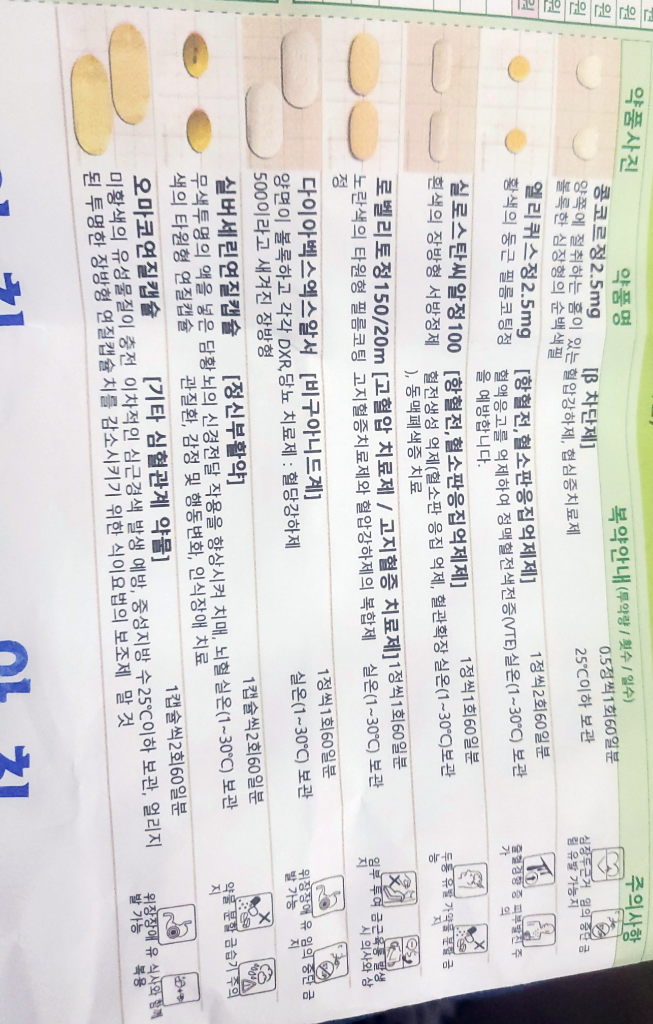 약품사진 약품명 복약안내(투약량 / 횟수 / 일수) 주의사항
콩코르정2.5mg
양쪽에 절취하는 홈이 있는
볼록한 심장형의 순백색필
[β 차단제]
혈압강하제, 협심증치료제
0.5정씩1회60일분
25℃이하 보관
심장두근거림유발 가능
임의 중단 금지
엘리퀴스정2.5mg
황색의 둥근 필름코팅정
[항혈전,혈소판응집억제제]
혈액응고를 억제하여 정맥혈전색전증(VTE)
을 예방합니다.
1정씩2회60일분
실온(1~30℃) 보관
출혈경향 주
피부발진 주
실로스탄씨알정100
흰색의 장방형 서방정제
[항혈전,혈소판응집억제제]
혈전생성 억제(혈소판 응집 억제, 혈관확장
), 동맥폐색증 치료
1정씩1회60일분
실온(1~30℃)보관
두통 유발 가능
약물 분할 금지
로벨리토정150/20m
노란색의 타원형 필름코팅
정
[고혈압 치료제 / 고지혈증 치료제]
고지혈증치료제와 혈압강하제의 복합제
1정씩1회60일분
실온(1~30℃) 보관
임부 투여 금지
근육통 발생시 의사와 상
다이아벡스엑스알서
양면이 볼록하고 각각 DXR,
500이라고 새겨진 장방형
[비구아니드계]
당뇨 치료제 : 혈당강하제
1정씩1회60일분
실온(1~30℃) 보관
위장장애 유발 가능
임의 중단 금지
실버세린연질캡슐
무색투명의 액을 넣은 담황
색의 타원형 연질캡슐
[정신부활약]
뇌의 신경전달 작용을 향상시켜 치매, 뇌혈
관질환, 감정 및 행동변화, 인식장애 치료
1캡슐씩2회60일분
실온(1~30℃) 보관
약물 분할 금지
습기 주의
오마코연질캡슐
미황색의 유성물질이 충전
된 투명한 장방형 연질캡슐
[기타 심혈관계 약물]
이차적인 심근경색 발생 예방, 중성지방 수
치를 감소시키기 위한 식이요법의 보조제
1캡슐씩2회60일분
25℃이하 보관, 얼리지
말 것
위장장애 유발 가능
식사와 함께 복용
아 침